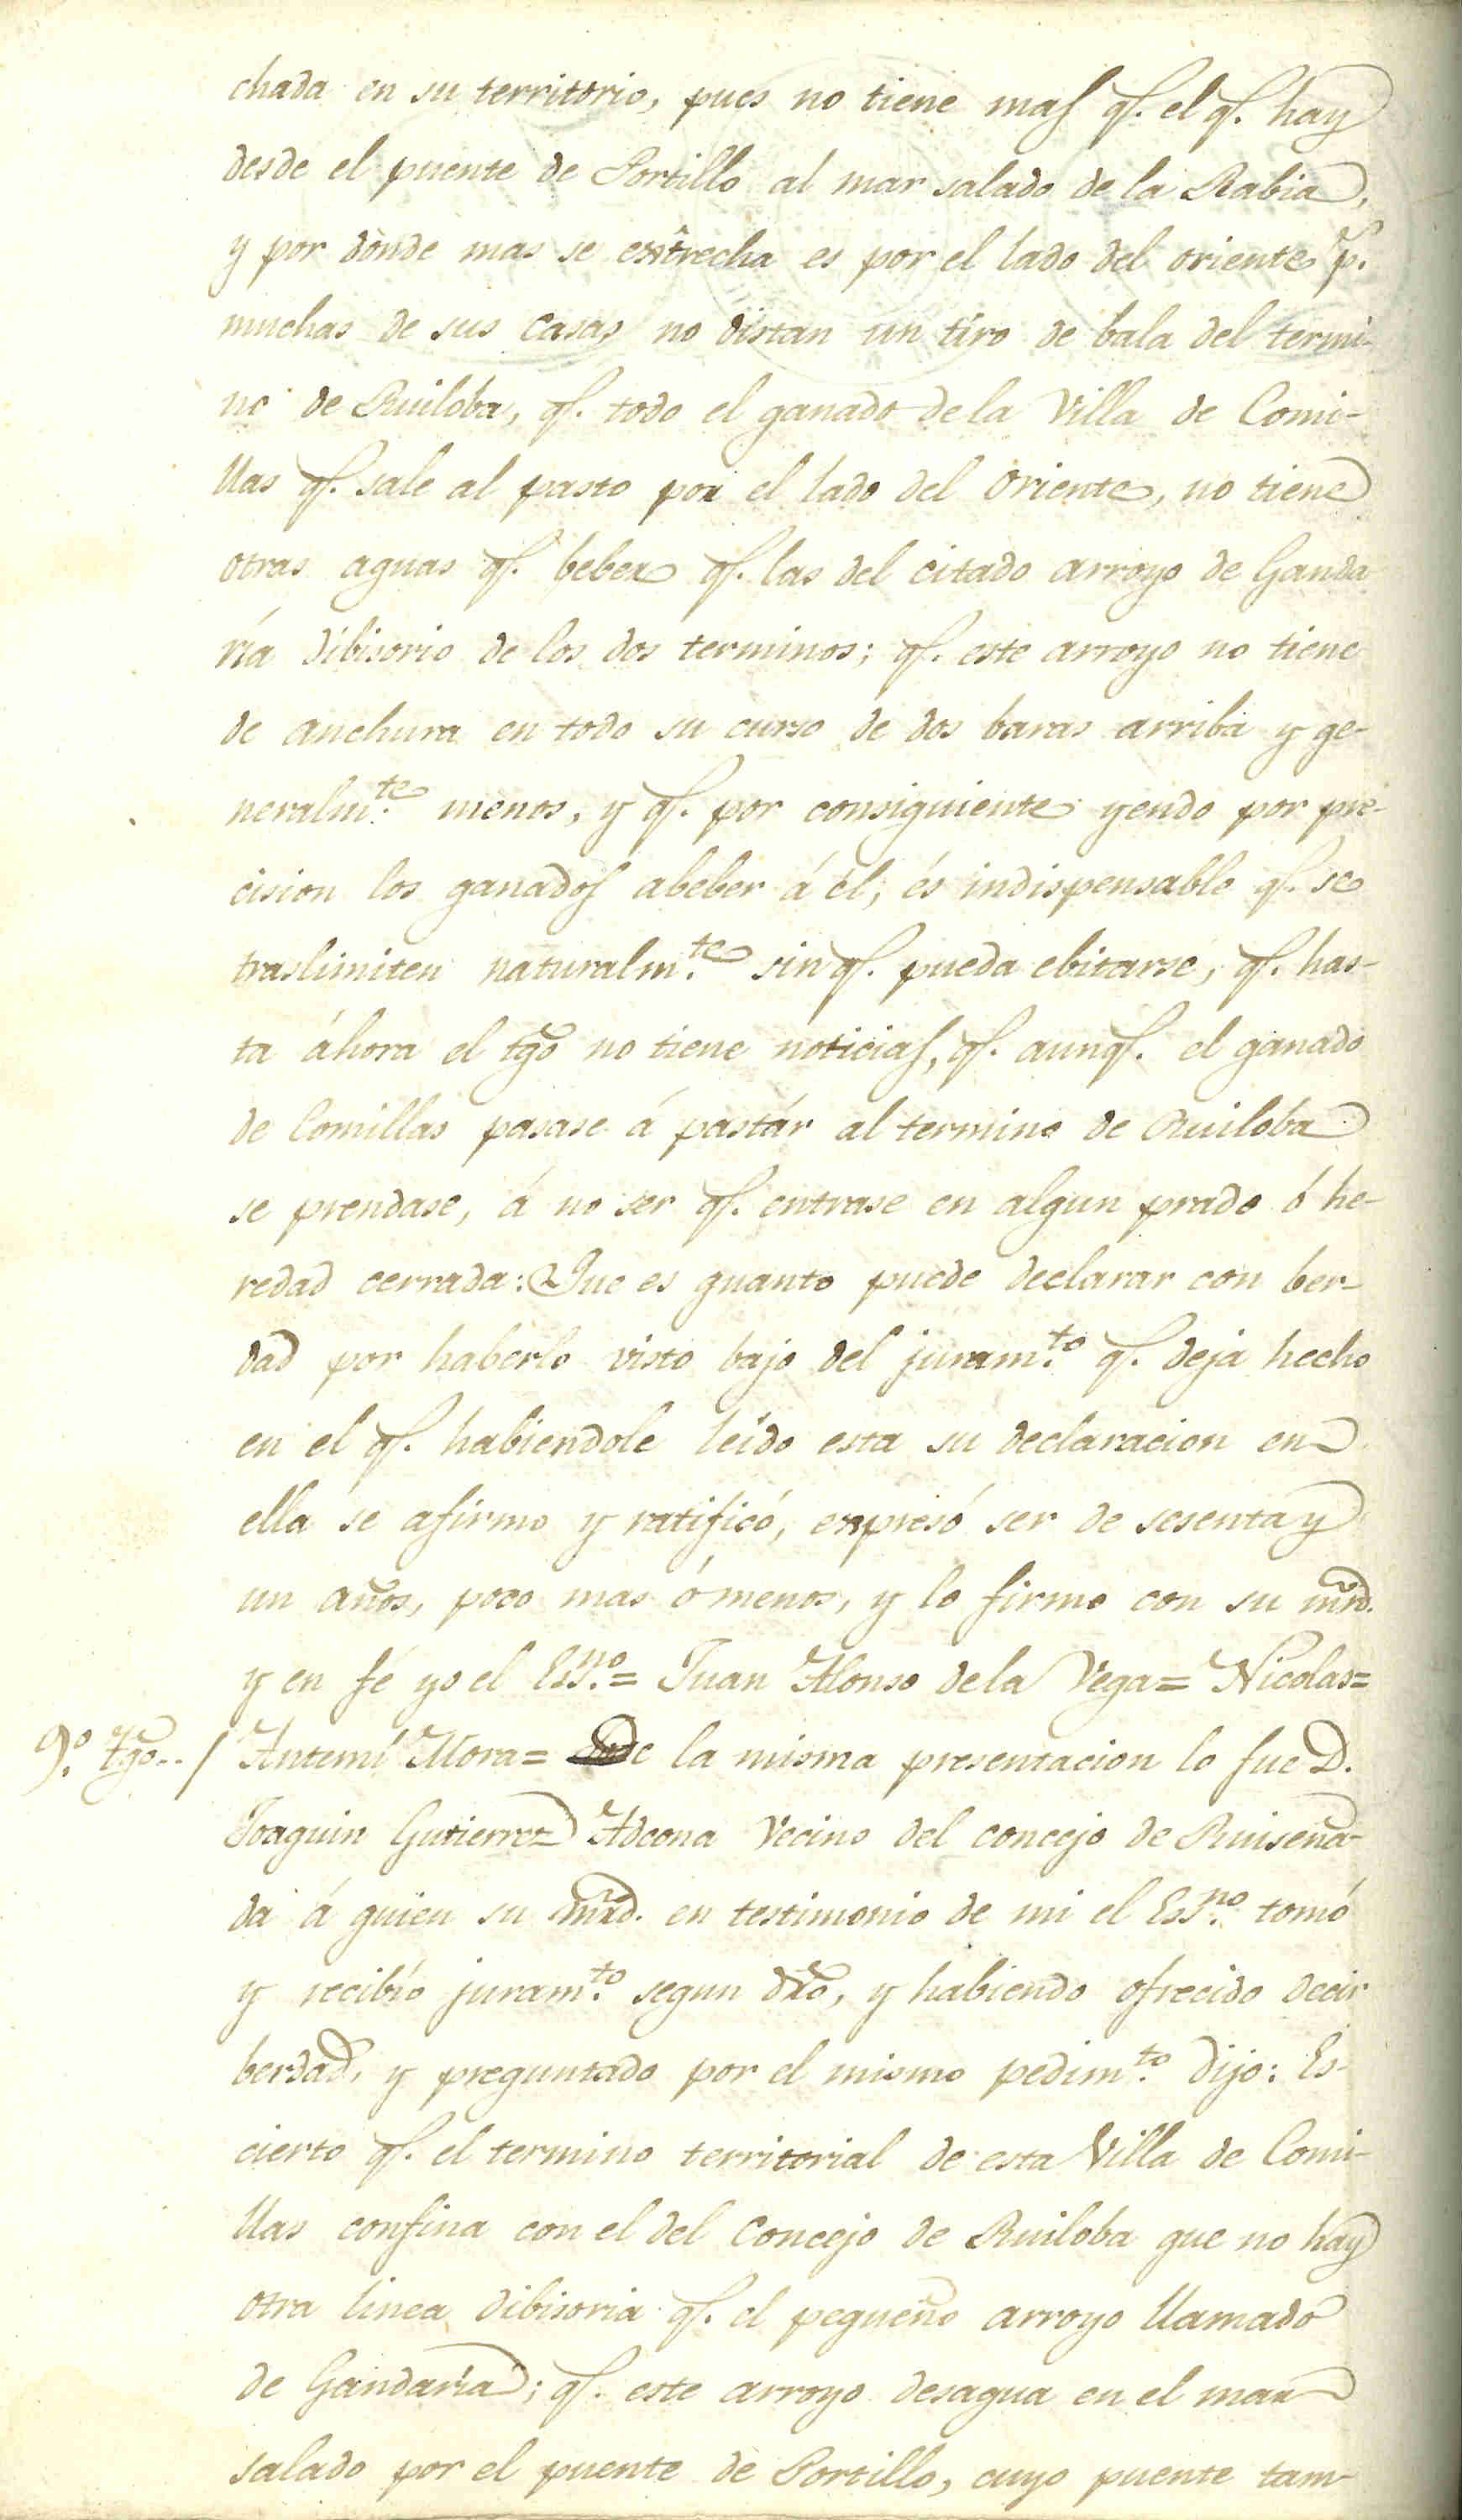 chada en su territorio, pues no tiene mas q.e el q.e hay
desde el puente de Portillo al mar salado de la Rabia,
y por donde mas se extrecha es por el lado del oriente p.s
muchas de sus casas no distan un tiro de bala del termi-
no de Ruiloba, q.e todo el ganado de la Villa de Comi-
llas q.e sale al pasto por el lado del Oriente, no tiene
otras aguas q.e beber q.e las del citado arroyo de Ganda
ría dibisorio de los dos terminos; q.e este arroyo no tiene
de anchura en todo su curso de dos baras arriba y ge-
neralm.te menos, y q.e por consiguiente yendo por pre-
cision los ganados abeber á él, és indispensable q.e se
traslimiten naturalm.te sin q.e pueda ebitarse, q.e has-
ta áhora el tgo no tiene noticias, q.e aunq.e el ganado
de Comillas pasase á pastár al termino de Ruiloba
se prendase, á no ser q.e entrase en algun prado ó he-
redad cerrada: Que es quanto puede declarar con ber-
dad por haberlo visto bajo del juram.to q.e deja hecho
en el q.e habiendole leido esta su declaracion en
ella se afirmo y ratificó, expresó ser de sesenta y
un años, poco mas ó menos, y lo firmo con su mrd.
y en fé yo el Ess.no = Juan Alonso de la Vega = Nicolas =
9.o tgo.. / Antemí Mora = De la misma presentacion lo fue D.
Joaquin Gutierrez Adeona Vecino del concejo de Ruiseña-
da á quien su mrd. en testimonio de mi el Ess.no tomó
y recibío juram.to segun dro, y habiendo ofrecido decir
berdad, y preguntado por el mismo pedim.to dijo: Es-
cierto q.e el termino territorial de esta Villa de Comi-
llas confina con el del Concejo de Ruiloba que no hay
otra linea dibisoria q.e el pequeño arroyo llamado
de Gandaría; q.e este arroyo desagua en el mar
salado por el puente de Portillo, cuyo puente tam-